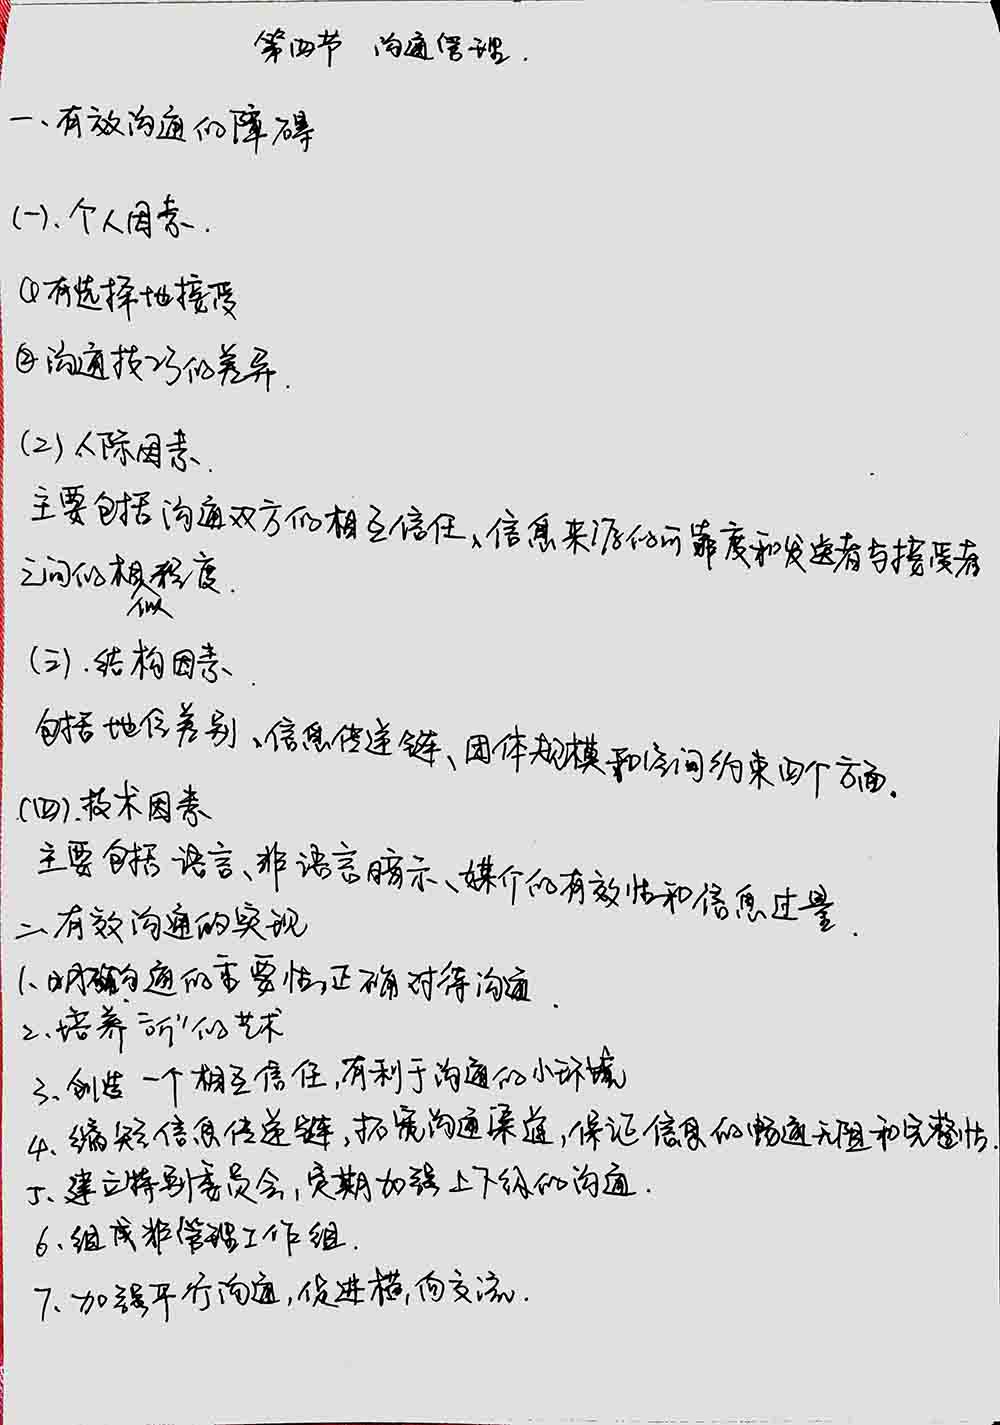 第四节 沟通管理.
一、有效沟通的障碍
(一)、个人因素.
①有选择地接受
②沟通技巧的差异.
(2)人际因素.
主要包括沟通双方的相互信任、信息来源的可靠度和发送者与接受者
之间的相似程度.
(三).结构因素.
包括地位差别、信息传递链、团体规模和空间约束四个方面。
(四).技术因素
主要包括语言、非语言暗示、媒介的有效性和信息过量.
二、有效沟通的实现
1、明确沟通的重要性,正确对待沟通.
2、培养"听"的艺术
3、创造一个相互信任,有利于沟通的小环境
4、缩短信息传递链,拓宽沟通渠道,保证信息的畅通无阻和完整性.
5、建立特别委员会,定期加强上下级的沟通.
6、组成非管理工作组.
7、加强平行沟通,促进横向交流.